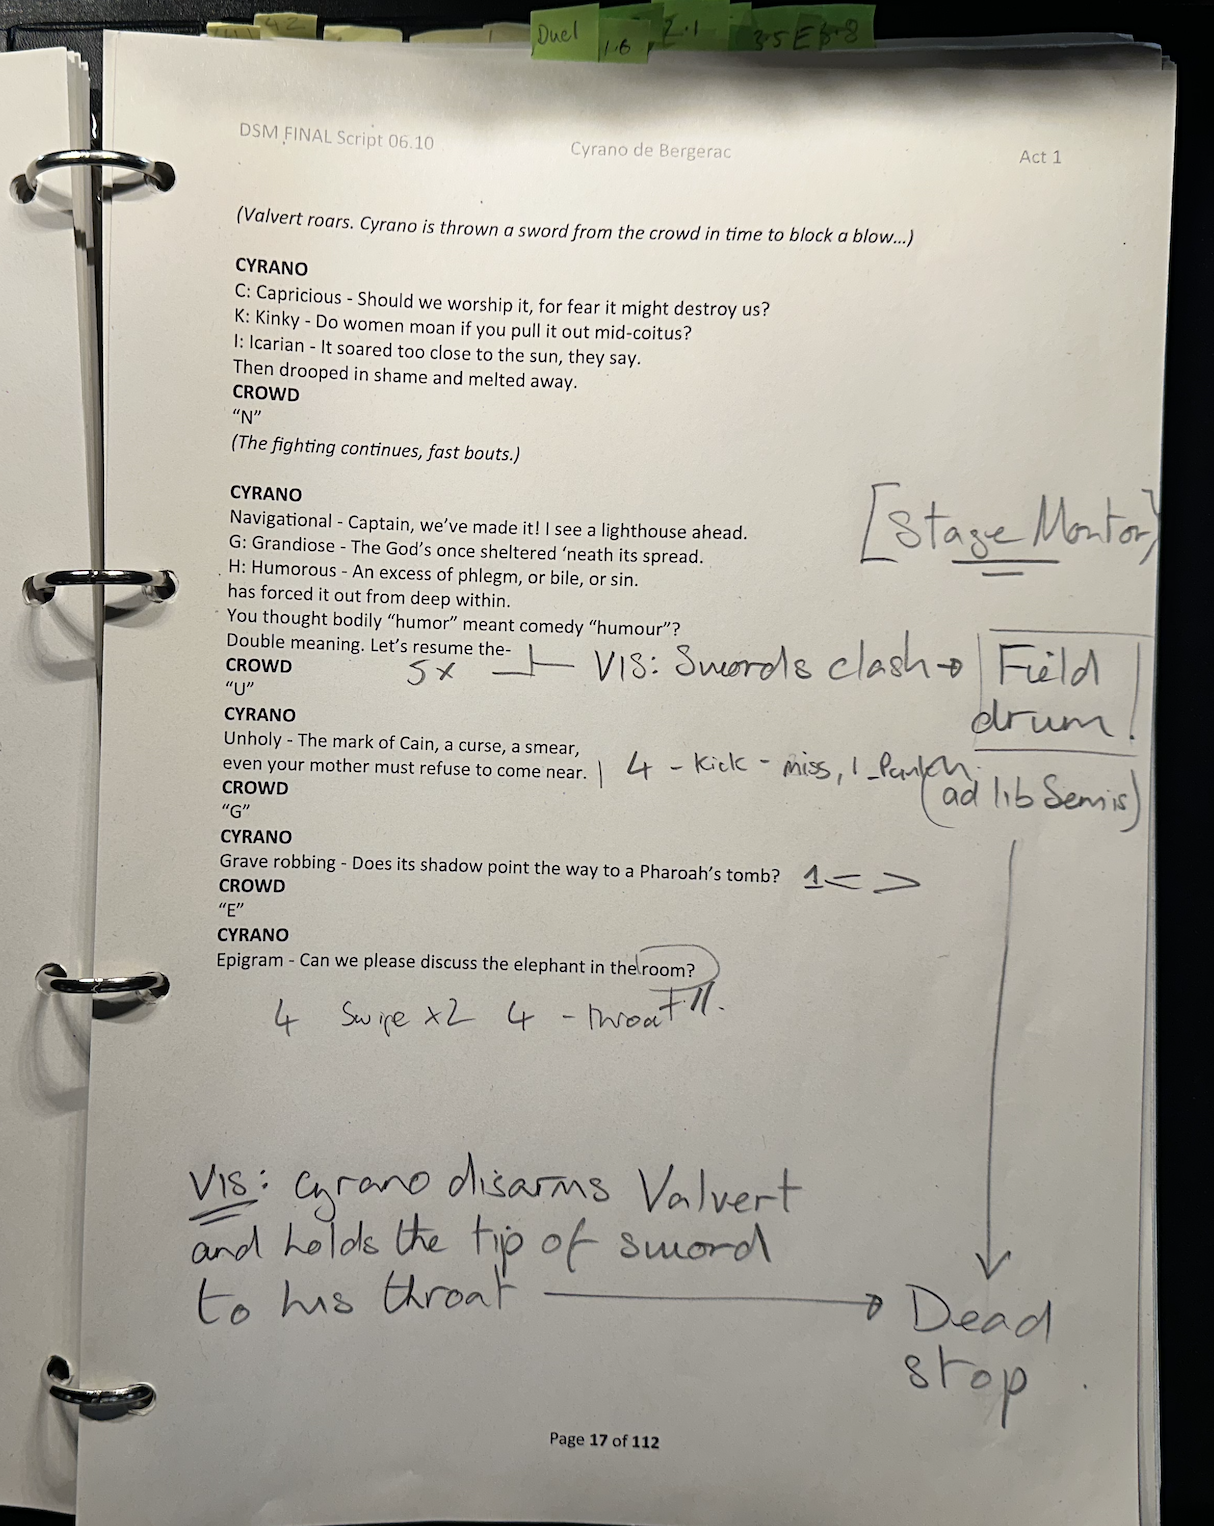 Duel
1.6
2.1
DSM FINAL Script 06.10
Cyrano de Bergerac
Act 1
(Valvert roars. Cyrano is thrown a sword from the crowd in time to block a blow...)
CYRANO
C: Capricious - Should we worship it, for fear it might destroy us?
K: Kinky - Do women moan if you pull it out mid-coitus?
I: Icarian - It soared too close to the sun, they say.
Then drooped in shame and melted away.
CROWD
“N”
(The fighting continues, fast bouts.)
CYRANO
Navigational - Captain, we’ve made it! I see a lighthouse ahead.
[Stage Montor]
G: Grandiose - The God’s once sheltered ‘neath its spread.
H: Humorous - An excess of phlegm, or bile, or sin.
has forced it out from deep within.
You thought bodily “humor” meant comedy “humour”?
Double meaning. Let’s resume the-
CROWD
5x
VIS: Swords clash → Field
drum!
“U”
CYRANO
Unholy - The mark of Cain, a curse, a smear,
even your mother must refuse to come near. | 4 - Kick - miss, 1
(ad lib Semis)
CROWD
“G”
CYRANO
Grave robbing - Does its shadow point the way to a Pharoah’s tomb? 1 < >
CROWD
“E”
CYRANO
Epigram - Can we please discuss the elephant in the room?
4 Swipe x2 4 - throat
VIS: Cyrano disarms Valvert
and holds the tip of sword
to his throat → Dead
stop
Page 17 of 112